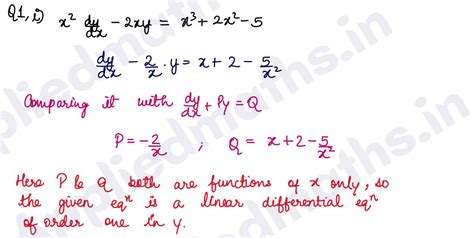 Q1, i) x² dy/dx - 2xy = x³ + 2x² - 5
dy/dx - 2/x . y = x + 2 - 5/x²
Comparing it with dy/dx + Py = Q
P = -2/x ; Q = x + 2 - 5/x²
Here P & Q both are functions of x only, so
the given eqⁿ is a linear differential eqⁿ
of order one in y.
appliedmaths.in